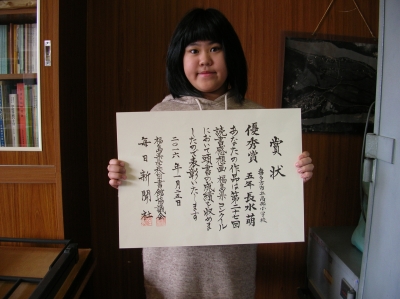 賞状
優秀賞
五年 長水 萌
あなたの作品は第二十七回
読書感想画福島県コンクール
において頭書の成績を収めま
したので表彰いたします
二〇一六年一月二五日
福島県学校図書館協議会
毎日新聞社